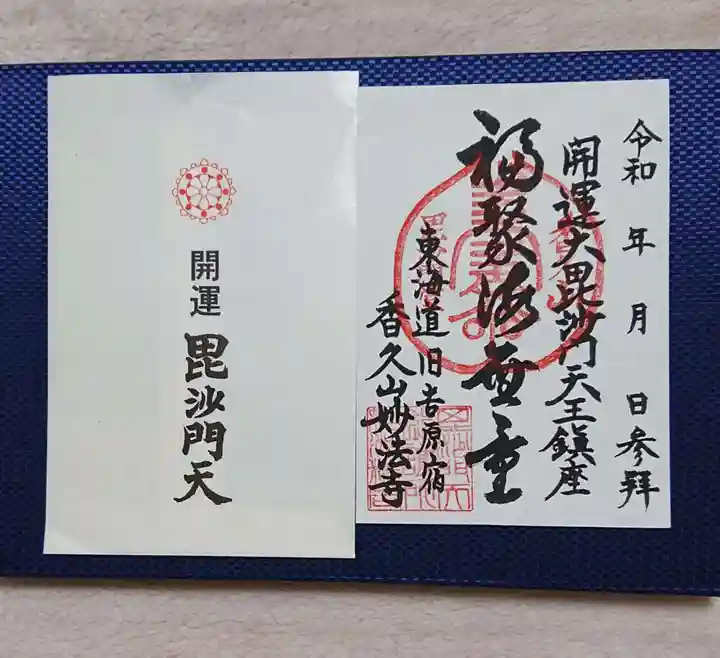 令和 年 月 日参拝
開運大毘沙門天王鎮座
福聚海無量
東海道旧吉原宿
香久山妙法寺
開運
毘沙門天